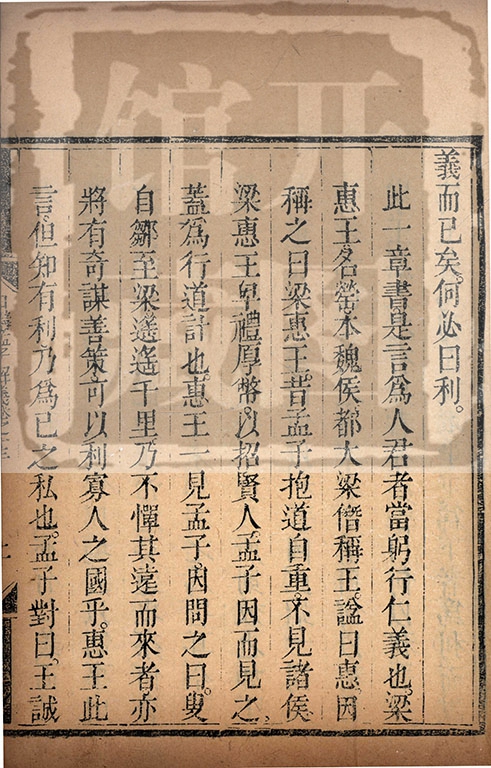 義而已矣。何必曰利。
此一章書是言為人君者當躬行仁義也。梁
惠王名罃本魏侯都大梁僭稱王。諡曰惠。因
稱之曰梁惠王。昔孟子抱道自重。不見諸侯
梁惠王卑禮厚幣。以招賢人。孟子因而見之
蓋為行道計也惠王一見孟子。因問之曰。叟
自鄒至梁遙遙千里。乃不憚其遠而來者亦
將有奇謀善策。可以利寡人之國乎。惠王此
言。但知有利乃為已之私也。孟子對曰。王誠